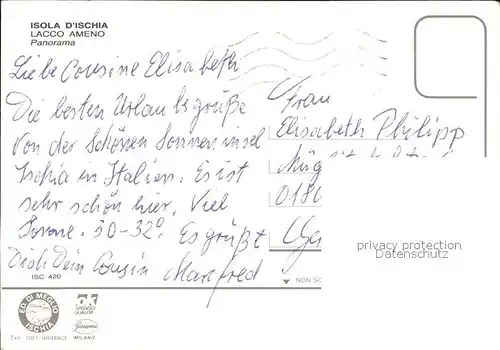 ISOLA D'ISCHIA
LACCO AMENO
Panorama
Liebe Cousine Elisabeth
Die besten Urlaubsgrüße
von der schönen Sonneninsel
Ischia in Italien. Es ist
sehr schön hier. Viel
Sonne. 30-32° Es grüßt
Dich Dein Cousin Manfred
Frau
Elisabeth Philipp
privacy protection
Datenschutz
ISC 420
NON SC
ED. DI MEGLIO
ISCHIA
MILANO